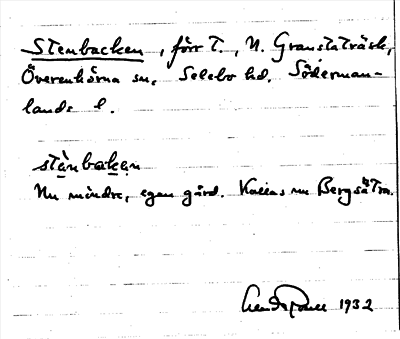 Stenbacken, förr T., N. Granstaträsk,
Överenhörna sn, Selebo hd. Söderman-
lands l.
stànbakęn
Nu mindre, egen gård. Kallas nu Bergsätra.
1932